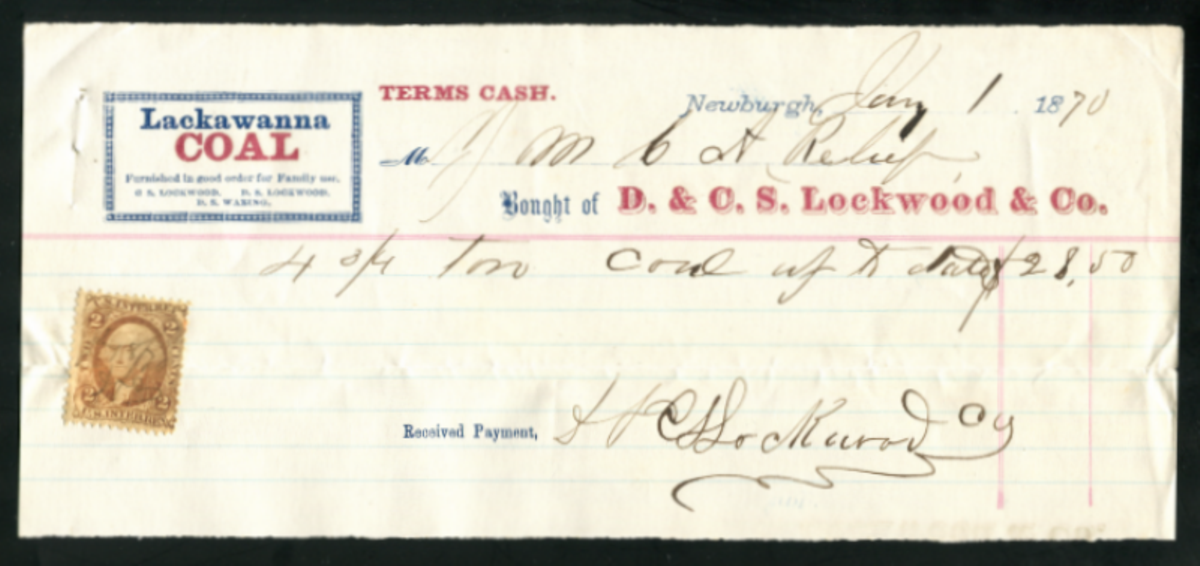 Lackawanna
COAL
Furnished in good order for Family use.
C. S. LOCKWOOD. D. S. LOCKWOOD.
D. S. WARING.
TERMS CASH.
Newburgh, Jany 1 1870
M
Bought of D. & C. S. Lockwood & Co.
4 3/4 Ton Coal up to date $28,50
2 2
2 2
Received Payment,
Lockwood Co